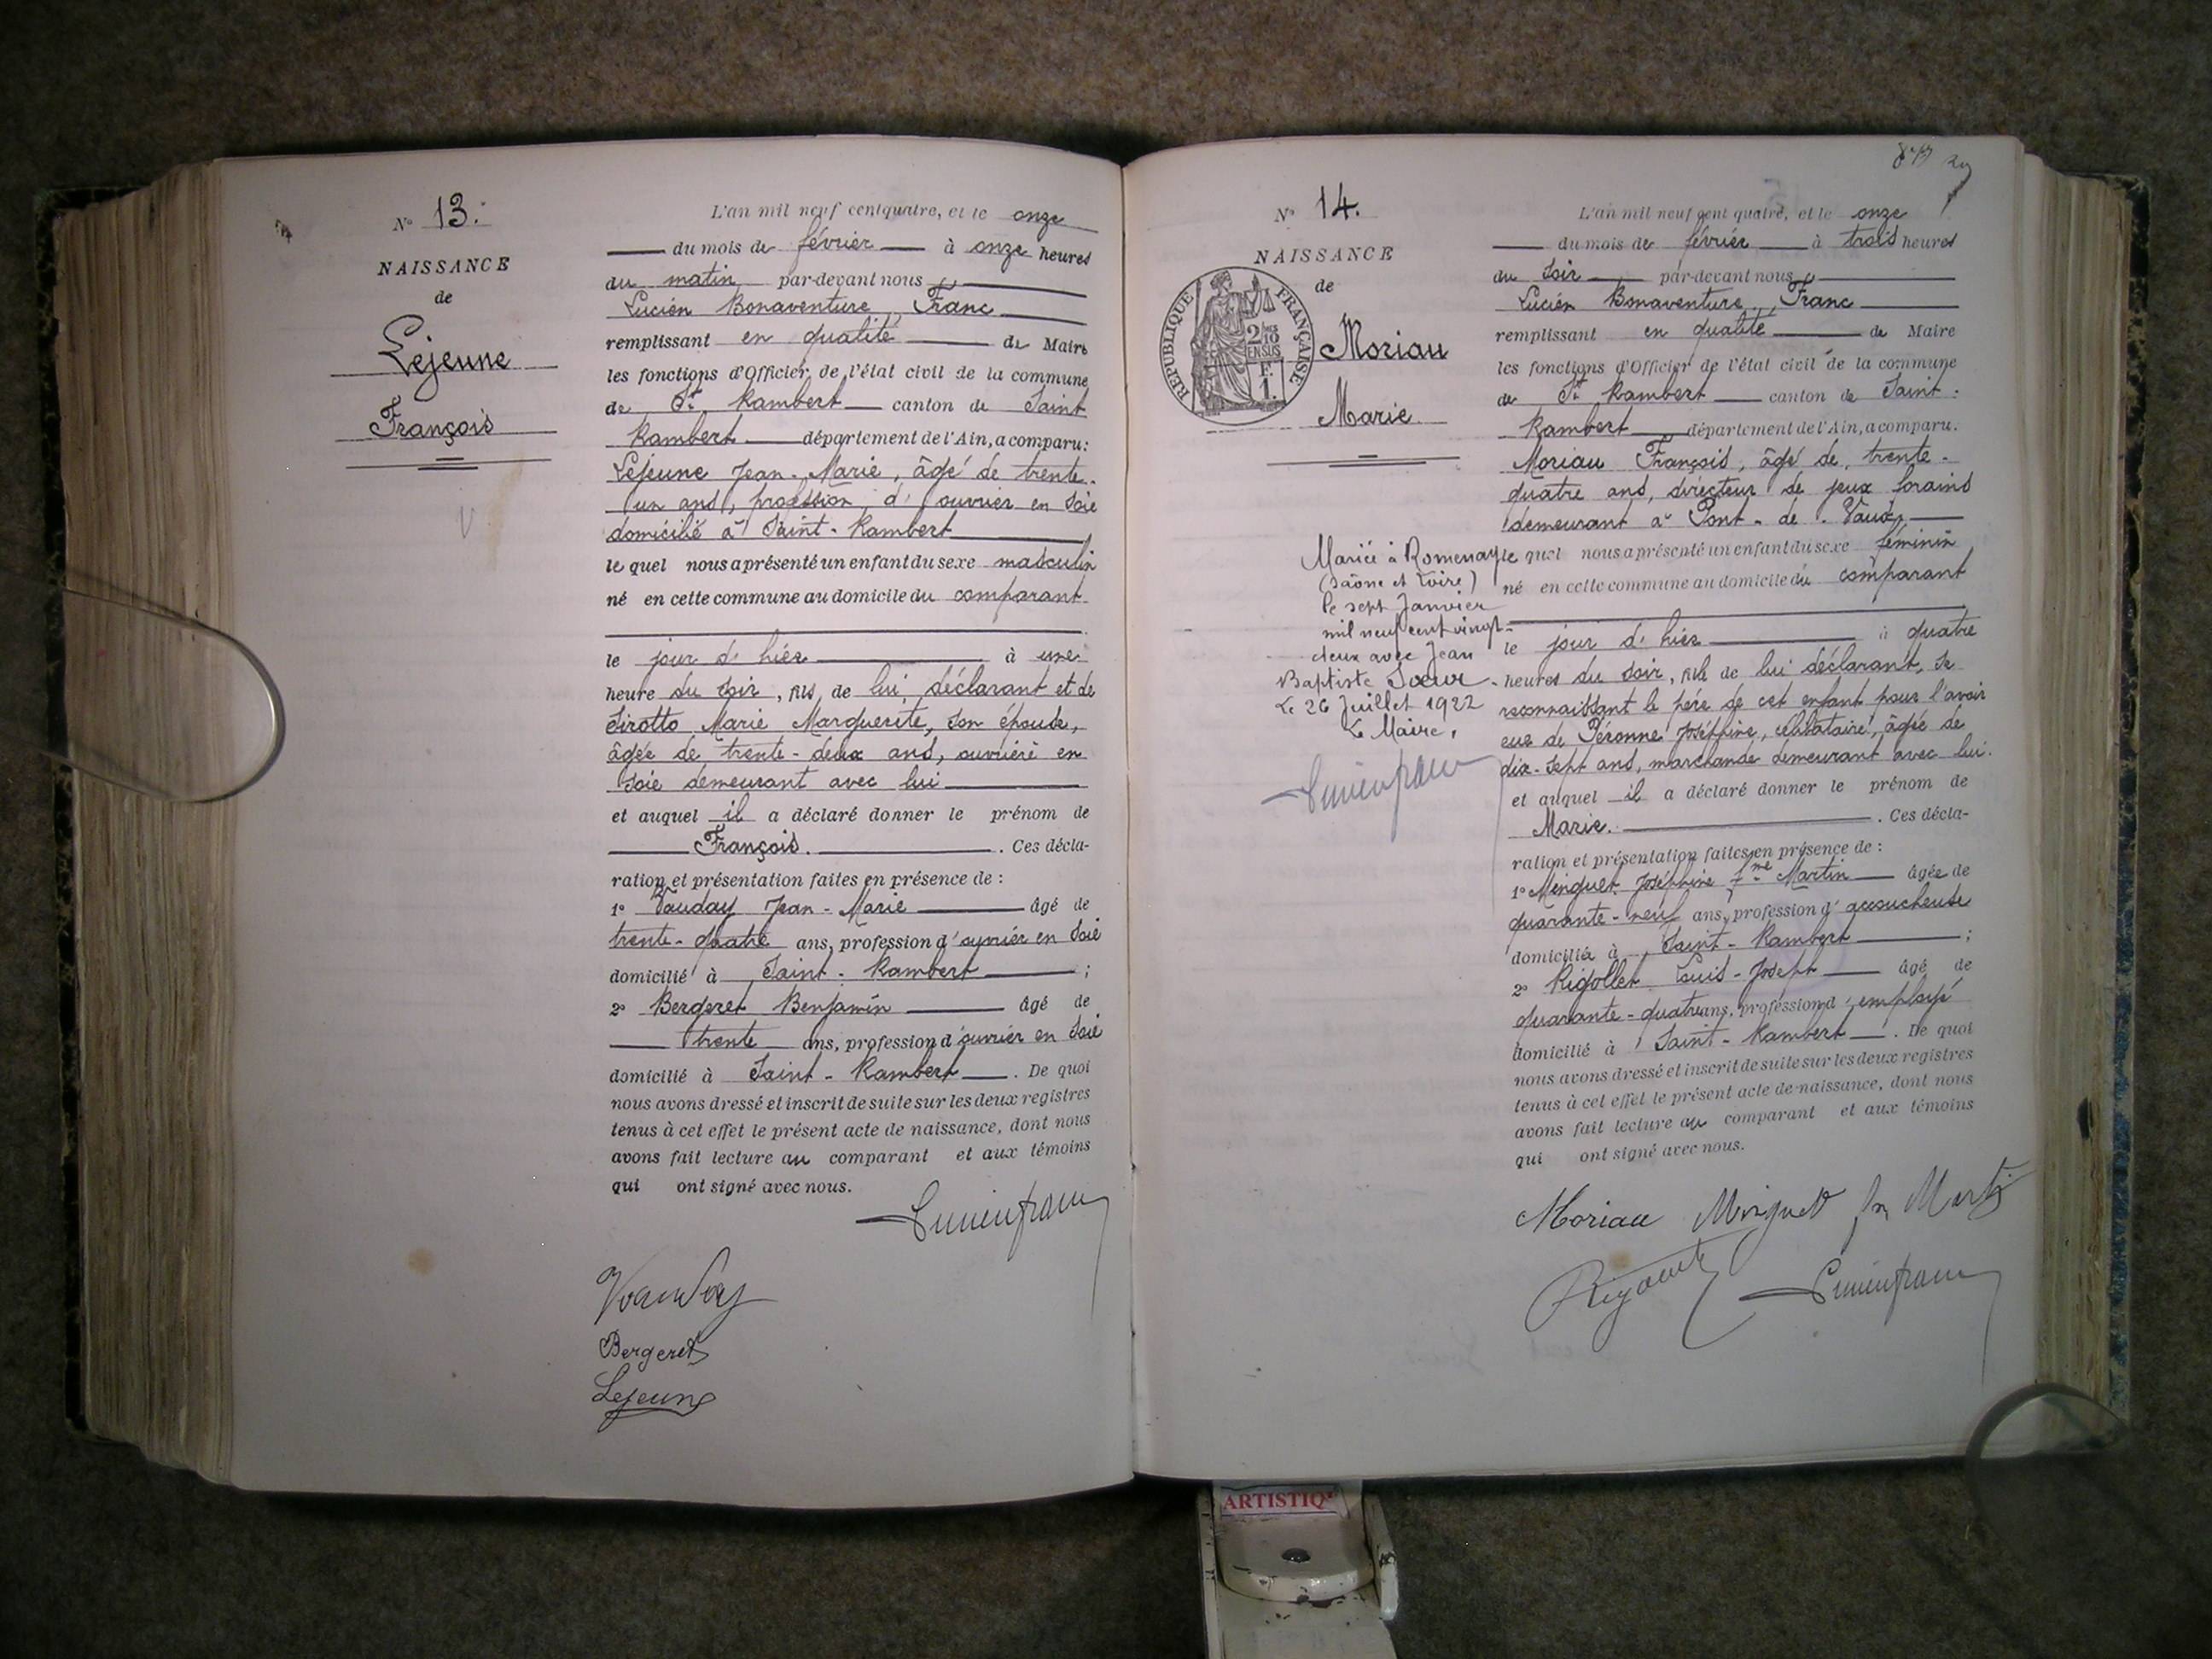 N° 13.
NAISSANCE
de
Lejeune
François
L'an mil neuf cent quatre, et le onze
du mois de février à onze heures
du matin par-devant nous
Lucien Bonaventure Franc
remplissant en qualité de Maire
les fonctions d'Officier de l'état civil de la commune
de St Rambert canton de Saint
Rambert département de l'Ain, a comparu:
Lejeune Jean-Marie, âgé de trente-
un ans, profession d'ouvrier en soie
domicilié à Saint-Rambert
lequel nous a présenté un enfant du sexe masculin
né en cette commune au domicile du comparant
le jour d'hier à une
heure du soir, fils de lui déclarant et de
Sirotto Marie Marguerite, son épouse,
âgée de trente-deux ans, ouvrière en
soie demeurant avec lui
et auquel il a déclaré donner le prénom de
François. Ces décla-
ration et présentation faites en présence de :
1° Vauday Jean-Marie âgé de
trente-quatre ans, profession d'ouvrier en soie
domicilié à Saint-Rambert ;
2° Bergeret Benjamin âgé de
trente ans, profession d'ouvrier en soie
domicilié à Saint-Rambert. De quoi
nous avons dressé et inscrit de suite sur les deux registres
tenus à cet effet le présent acte de naissance, dont nous
avons fait lecture au comparant et aux témoins
qui ont signé avec nous.
Lucien franc
Vauday
Bergeret
Lejeune
N° 14.
NAISSANCE
de
REPUBLIQUE FRANÇAISE
2/10
EN SUS
F.
1.
Moriau
Marie
Mariée à Romenay
(Saône et Loire)
le sept Janvier
mil neuf cent vingt-
deux avec Jean
Baptiste Soeur
Le 26 Juillet 1922
Le Maire,
Lucien franc
L'an mil neuf cent quatre, et le onze
du mois de février à trois heures
du soir par-devant nous
Lucien Bonaventure Franc
remplissant en qualité de Maire
les fonctions d'Officier de l'état civil de la commune
de St Rambert canton de Saint-
Rambert département de l'Ain, a comparu.
Moriau François, âgé de trente-
quatre ans, directeur de jeux forains
demeurant à Pont-de-Vaux,
lequel nous a présenté un enfant du sexe féminin
né en cette commune au domicile du comparant
le jour d'hier à quatre
heures du soir, fille de lui déclarant, se
reconnaissant le père de cet enfant pour l'avoir
eue de Péronne Joséphine, célibataire, âgée de
dix-sept ans, marchande demeurant avec lui.
et auquel il a déclaré donner le prénom de
Marie. Ces décla-
ration et présentation faites en présence de :
1° Minguet Joséphine fme Martin âgée de
quarante-neuf ans, profession d'accoucheuse
domiciliée à Saint-Rambert ;
2° Rigollet Louis-Joseph âgé de
quarante-quatre ans, profession d'employé
domicilié à Saint-Rambert. De quoi
nous avons dressé et inscrit de suite sur les deux registres
tenus à cet effet le présent acte de naissance, dont nous
avons fait lecture au comparant et aux témoins
qui ont signé avec nous.
Moriau Minguet fm Martin
Lucien franc
ARTISTIQ